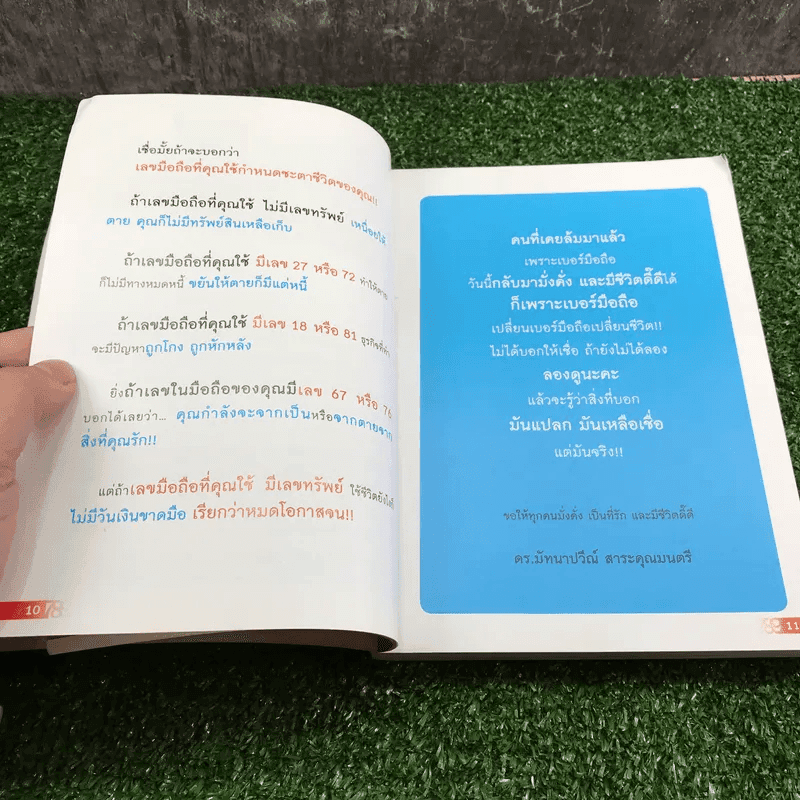 เชื่อมั้ยถ้าจะบอกว่า
เลขมือถือที่คุณใช้กำหนดชะตาชีวิตของคุณ!!
ถ้าเลขมือถือที่คุณใช้ ไม่มีเลขทรัพย์ เหนื่อยให้
ตาย คุณก็ไม่มีทรัพย์สินเหลือเก็บ
ถ้าเลขมือถือที่คุณใช้ มีเลข 27 หรือ 72 ทำให้ตาย
ก็ไม่มีทางหมดหนี้ ขยันให้ตายก็มีแต่หนี้
ถ้าเลขมือถือที่คุณใช้ มีเลข 18 หรือ 81 ธุรกิจที่ทำ
จะมีปัญหาถูกโกง ถูกหักหลัง
ยิ่งถ้าเลขในมือถือของคุณมี เลข 67 หรือ 76
บอกได้เลยว่า... คุณกำลังจะจากเป็นหรือจากตายจาก
สิ่งที่คุณรัก!!
แต่ถ้าเลขมือถือที่คุณใช้ มีเลขทรัพย์ ใช้ชีวิตยังไงก็
ไม่มีวันเงินขาดมือ เรียกว่าหมดโอกาสจน!!
10
คนที่เคยล้มมาแล้ว
เพราะเบอร์มือถือ
วันนี้กลับมามั่งคั่ง และมีชีวิตดี๊ดีได้
ก็เพราะเบอร์มือถือ
เปลี่ยนเบอร์มือถือเปลี่ยนชีวิต!!
ไม่ได้บอกให้เชื่อ ถ้ายังไม่ได้ลอง
ลองดูนะคะ
แล้วจะรู้ว่าสิ่งที่บอก
มันแปลก มันเหลือเชื่อ
แต่มันจริง!!
ขอให้ทุกคนมั่งคั่ง เป็นที่รัก และมีชีวิตดี๊ดี
ดร.มัทนาปวีณ์ สาระคุณมนตรี
11